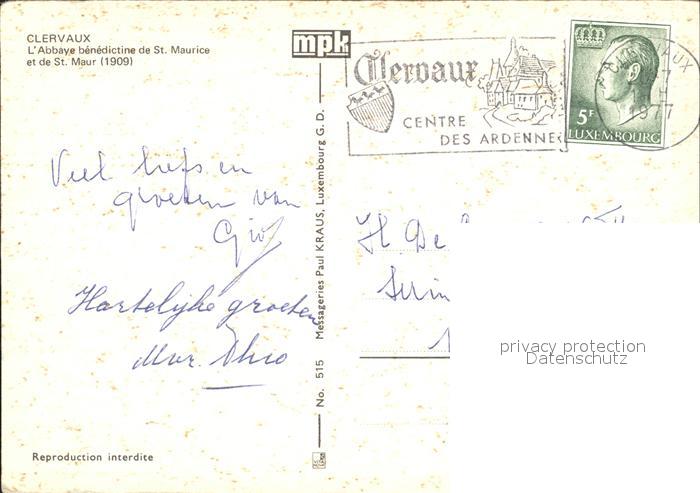 CLERVAUX
L'Abbaye bénédictine de St. Maurice
et de St. Maur (1909)
mpk
Clervaux
CENTRE
DES ARDENNES
CLERVAUX
1977
5F
LUXEMBOURG
Veel liefs en
groeten van
Hartelijke groeten
Theo
No. 515 Messageries Paul KRAUS, Luxembourg G. D.
privacy protection
Datenschutz
Reproduction interdite